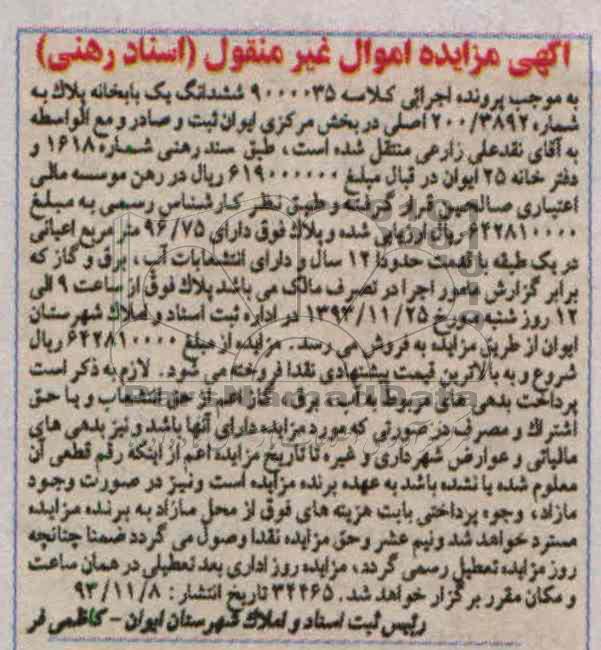 آگهی مزایده اموال غیر منقول (اسناد رهنی)
به موجب پرونده اجرائی کلاسه ۹۰۰۰۰۳۵ ششدانگ یک بابخانه پلاک به
شماره ۲۰۰/۳۸۹۲ اصلی در بخش مرکزی ایوان ثبت و صادر و مع الواسطه
به آقای نقدعلی زارعی منتقل شده است، طبق سند رهنی شماره ۱۶۱۸ و
دفتر خانه ۲۵ ایوان در قبال مبلغ ۶۱۹۰۰۰۰۰۰ ریال در رهن موسسه مالی
اعتباری صالحین قرار گرفته و طبق نظر کارشناس رسمی به مبلغ
۶۴۲۸۱۰۰۰۰ ریال ارزیابی شده و پلاک فوق دارای ۹۶/۷۵ متر مربع اعیانی
در یک طبقه با قدمت حدودا ۱۲ سال و دارای انتشعابات آب، برق و گاز که
برابر گزارش مامور اجرا در تصرف مالک می باشد پلاک فوق از ساعت ۹ الی
۱۲ روز شنبه مورخ ۱۳۹۳/۱۱/۲۵ در اداره ثبت اسناد و املاک شهرستان
ایوان از طریق مزایده به فروش می رسد. مزایده از مبلغ ۶۴۲۸۱۰۰۰۰ ریال
شروع و به بالاترین قیمت پیشنهادی نقدا فروخته می شود. لازم به ذکر است
پرداخت بدهی های مربوط به آب، برق، گاز اعم از حق انشعاب و یا حق
اشتراک و مصرف در صورتی که مورد مزایده دارای آنها باشد و نیز بدهی های
مالیاتی و عوارض شهرداری و غیره تا تاریخ مزایده اعم از اینکه رقم قطعی آن
معلوم شده یا نشده باشد به عهده برنده مزایده است ونیز در صورت وجود
مازاد، وجوه پرداختی بابت هزینه های فوق از محل مازاد به برنده مزایده
مسترد خواهد شد ونیم عشر وحق مزایده نقدا وصول می گردد ضمنا چنانچه
روز مزایده تعطیل رسمی گردد، مزایده روز اداری بعد تعطیلی در همان ساعت
و مکان مقرر برگزار خواهد شد. ۳۴۴۶۵ تاریخ انتشار: ۹۳/۱۱/۸
رئیس ثبت اسناد و املاک شهرستان ایوان - کاظمی فر
ParsNamadData